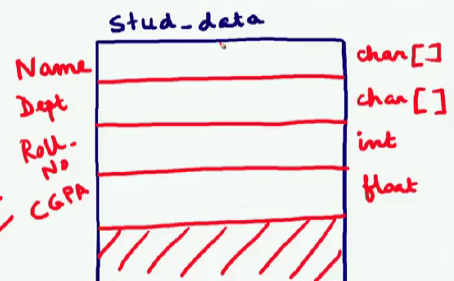 stud_data
Name char[]
Dept char[]
Roll- int
No
CGPA float